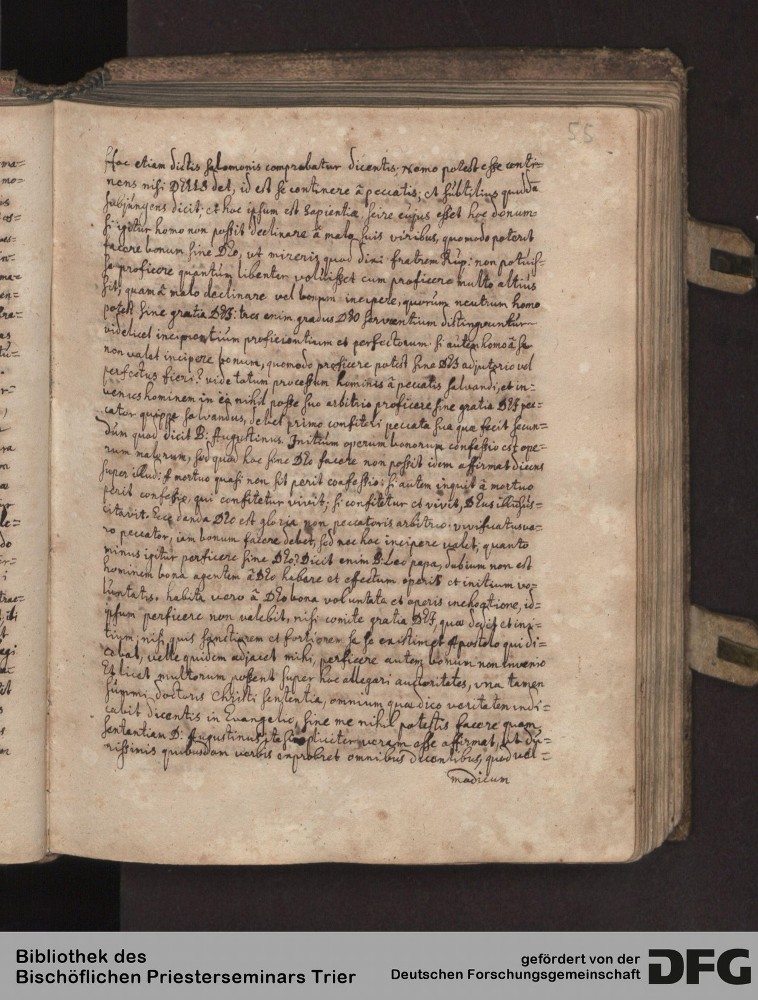 55
Hoc etiam dictis Salomonis comprobatur dicentis: Nemo potest esse conti=
nens nisi DEUS det, id est se continere â peccatis; et subtilius quidã
subjungens dicit; et hoc ipsum est sapientia, scire cujus esset hoc donum=
si igitur homo non possit declinare â malo suis viribus, quomodo poterit
facere bonum sine Deo, ut mireris quod dixi fratrem Rup: non potuis=
se proficere quantum libenter voluisset cum proficere multo altius
sit, quam â malo declinare vel bonum incipere, quorum neutrum homo
potest sine gratia DEI: tres enim gradus DEO servientium distinguuntur
videlicet incipientium proficientium et perfectorum si autem homo â se
non valet incipere bonum, quomodo proficere potest sine DEI adjutorio vel
perfectus fieri? vide totum processum hominis â peccatis salvandi, et in=
venies hominem in eo nihil posse suo arbitrio proficere sine gratia DEI pec=
cator quippe salvandus, debet primo confiteri peccata sua quæ fecit secun=
dum quod dicit B: Augustinus. Initium operum bonorum confessio est ope=
rum malorum, sed quod hoc sine Deo facere non possit idem affirmat dicens
super illud: â mortuo quasi non sit perit confessio; si autem inquit â mortuo
perit confessio, qui confitetur vivit; si confitetur et vivit, DEus illum sus=
citavit. Ecce danda DEO est gloria non peccatoris arbitrio. vivificatus ve=
ro peccator, iam bonum facere debet, sed nec hoc incipere valet, quanto
minus igitur perficere sine DEO? Dicit enim B: Leo papa, dubium non est
hominem bona agentem â DEO habere et effectum operis et initium vo=
luntatis. habita vero â DEO bona voluntate et operis inchoatione, id=
ipsum perficere non valebit, nisi comite gratia DEI, quæ dedit et ini=
tium; nisi quis sanctiorem et fortiorem se se existimet Apostolo qui di=
cebat, velle quidem adjacet mihi, perficere autem bonum non invenio
Et licet multorum possent super hoc allegari auctoritates, una tamen
summi doctoris Christi sententia, omnium quæ dico veritatem indi=
cabit dicentis in Evangelio, sine me nihil potestis facere quam
sententiam D: Augustinus ita simpliciter veram esse affirmat, ut du=
rissimis quibusdam verbis exprobret omnibus dicentibus, quod vel=
modicum
Bibliothek des
Bischöflichen Priesterseminars Trier
gefördert von der
Deutschen Forschungsgemeinschaft
DFG